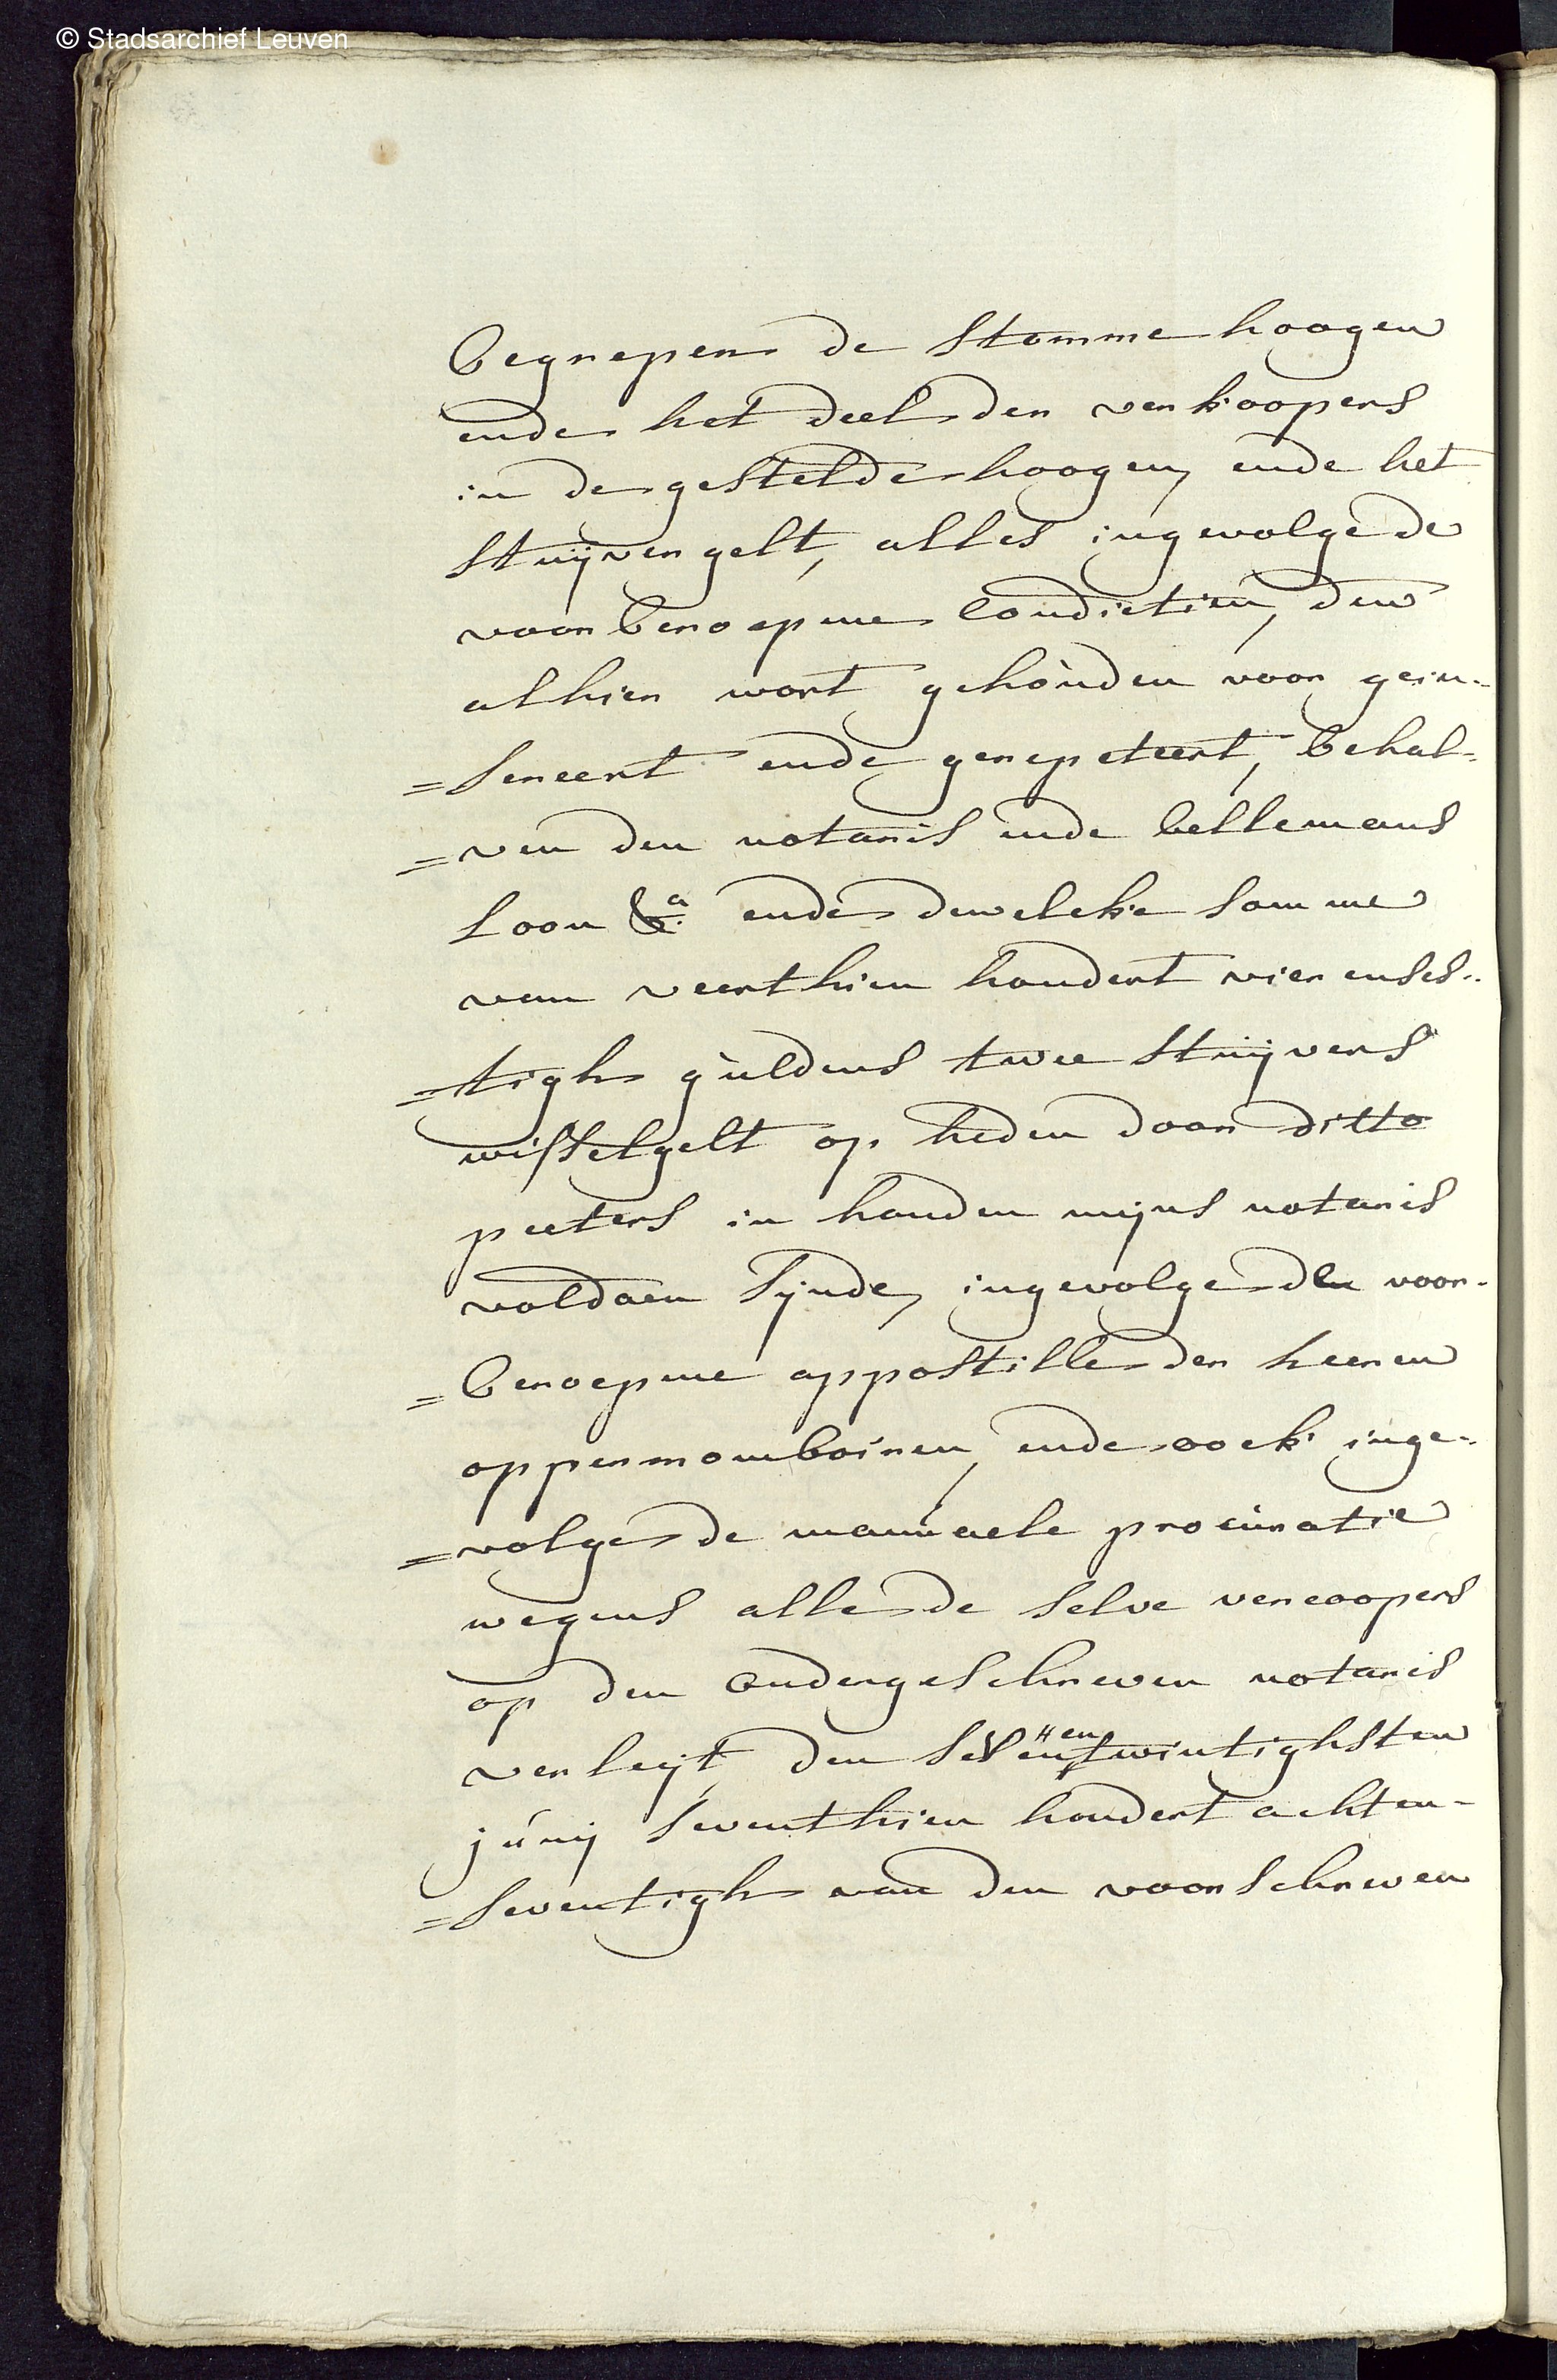 © Stadsarchief Leuven
begrepen de stomme hoogen
ende het deel der verkoopers
in de gestelde hoogen, ende het
stuijvergelt, alles ingevolge de
voorberoepene conditien, dew
alhier wort gehouden voor gein-
=sereert ende gerepeteert, behal-
=ven den notaris ende bellemans
loon &a. ende dewelcke somme
van veerthien hondert vier enses-
=tigh guldens twee stuijvers
wisselgelt op heden door ditto
peeters in handen mijns notaris
voldaen sijnde, ingevolge de voor-
=beroepene appostille der heeren
oppermomboiren, ende oock inge-
=volge de manuaele procuratie
wegens alle de selve vercoopers
op den ondergeschreven notaris
verleijt, den sessentwintighsten
junij seventhien hondert achten-
=seventigh van den voorschreven